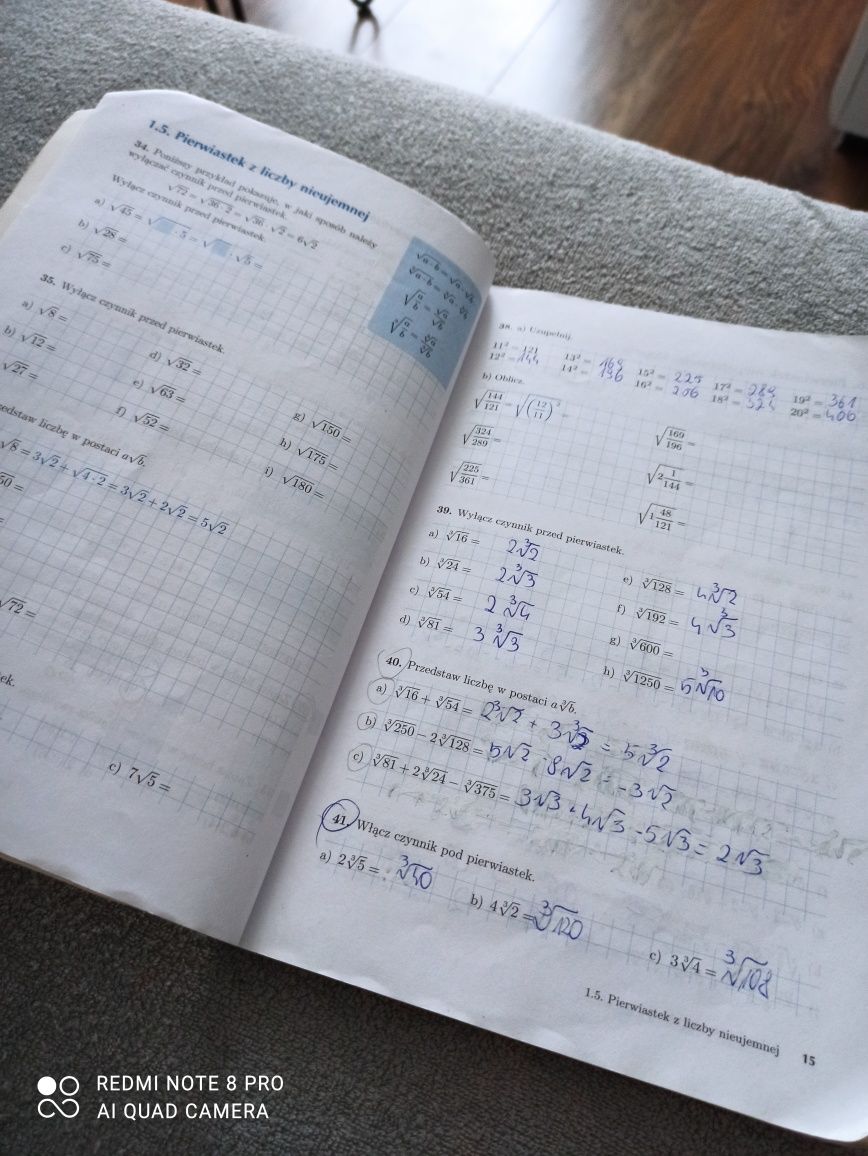 1.5. Pierwiastek z liczby nieujemnej
34. Poniższy przykład pokazuje, w jaki sposób należy
wyłączać czynnik przed pierwiastek.
√72 = √36·2 = √36 · √2 = 6√2
Wyłącz czynnik przed pierwiastek.
a) √45 = √ ·5 = √ · √5 =
b) √28 =
c) √75 =
√a·b = √a · √b
∛a·b = ∛a · ∛b
√a/b = √a/√b
∛a/b = ∛a/∛b
35. Wyłącz czynnik przed pierwiastek.
a) √8 =
b) √12 =
√27 =
d) √32 =
e) √63 =
f) √52 =
g) √150 =
h) √175 =
i) √180 =
liczbę w postaci a√b.
√8 = 3√2 + √4·2 = 3√2 + 2√2 = 5√2
50 =
=
√72 =
ek.
c) 7√5 =
38. a) Uzupełnij.
11² = 121 13² = 169 15² = 225 17² = 289 19² = 361
12² = 144 14² = 196 16² = 256 18² = 324 20² = 400
b) Oblicz.
√144/121 = √(12/11)² =
√324/289 =
√225/361 =
√169/196 =
√2 1/144 =
√1 48/121 =
39. Wyłącz czynnik przed pierwiastek.
a) ∛16 = 2∛2
b) ∛24 = 2∛3
c) ∛54 = 2∛4
d) ∛81 = 3∛3
e) ∛128 = 4∛2
f) ∛192 = 4∛3
g) ∛600 =
h) ∛1250 = 5∛10
40. Przedstaw liczbę w postaci a∛b.
a) ∛16 + ∛54 = 2∛2 + 3∛2 = 5∛2
b) ∛250 − 2∛128 = 5√2 - 8√2 = -3√2
c) ∛81 + 2∛24 − ∛375 = 3√3 + 4√3 - 5√3 = 2√3
41. Włącz czynnik pod pierwiastek.
a) 2∛5 = ∛40
b) 4∛2 = ∛120
c) 3∛4 = ∛108
1.5. Pierwiastek z liczby nieujemnej 15
REDMI NOTE 8 PRO
AI QUAD CAMERA